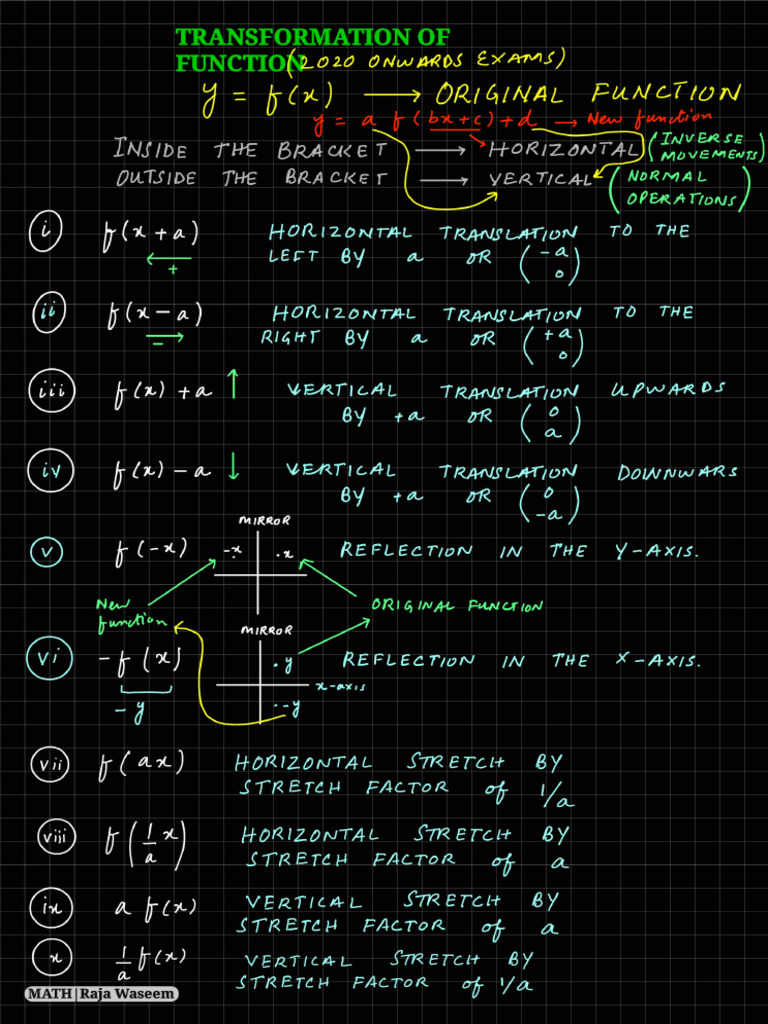 TRANSFORMATION OF
FUNCTION (2020 ONWARDS EXAMS)
y = f(x) → ORIGINAL FUNCTION
y = a f(bx+c)+d → New function
INSIDE THE BRACKET → HORIZONTAL (INVERSE MOVEMENTS)
OUTSIDE THE BRACKET → VERTICAL (NORMAL OPERATIONS)
i f(x + a) HORIZONTAL TRANSLATION TO THE
← + LEFT BY a OR (-a 0)
ii f(x - a) HORIZONTAL TRANSLATION TO THE
→ - RIGHT BY a OR (+a 0)
iii f(x) + a ↑ VERTICAL TRANSLATION UPWARDS
BY +a OR (0 a)
iv f(x) - a ↓ VERTICAL TRANSLATION DOWNWARS
BY +a OR (0 -a)
MIRROR
v f(-x) -x .x REFLECTION IN THE Y-AXIS.
New function ORIGINAL FUNCTION
MIRROR
vi -f(x) .y REFLECTION IN THE X-AXIS.
x-axis
-y .-y
vii f(ax) HORIZONTAL STRETCH BY
STRETCH FACTOR of 1/a
viii f(1/a x) HORIZONTAL STRETCH BY
STRETCH FACTOR of a
ix a f(x) VERTICAL STRETCH BY
STRETCH FACTOR of a
x 1/a f(x) VERTICAL STRETCH BY
STRETCH FACTOR of 1/a
MATH|Raja Waseem